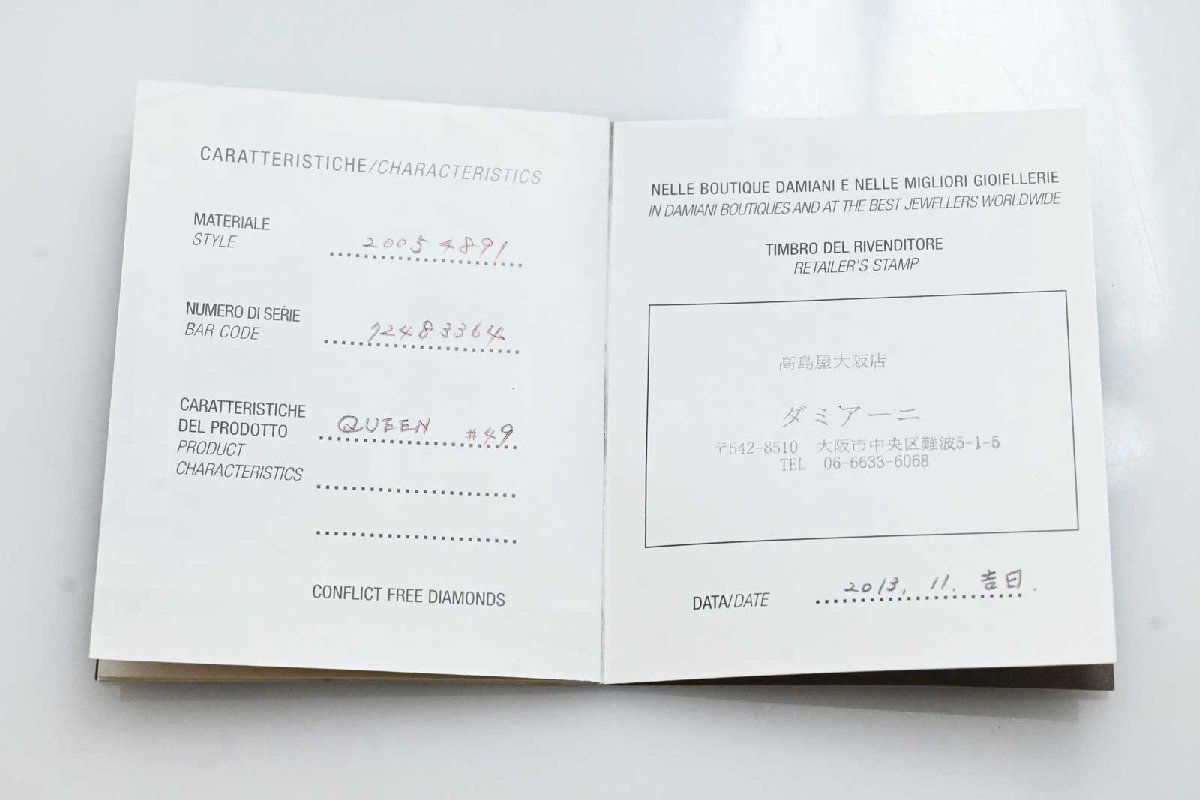 CARATTERISTICHE/CHARACTERISTICS
MATERIALE
STYLE
20054891
NUMERO DI SERIE
BAR CODE
12483364
CARATTERISTICHE
DEL PRODOTTO
PRODUCT
CHARACTERISTICS
QUEEN #49
CONFLICT FREE DIAMONDS
NELLE BOUTIQUE DAMIANI E NELLE MIGLIORI GIOIELLERIE
IN DAMIANI BOUTIQUES AND AT THE BEST JEWELLERS WORLDWIDE
TIMBRO DEL RIVENDITORE
RETAILER'S STAMP
高島屋大阪店
ダミアーニ
〒542-8510 大阪市中央区難波5-1-5
TEL 06-6633-6068
DATA/DATE 2013. 11. 吉日.